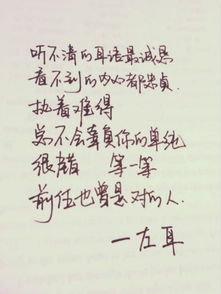 听不清的耳语最诚恳
看不到的内心都忠貞.
执着难得
总不会辜负你的单纯
很 等一等
前任也曾是对的人.
—左耳